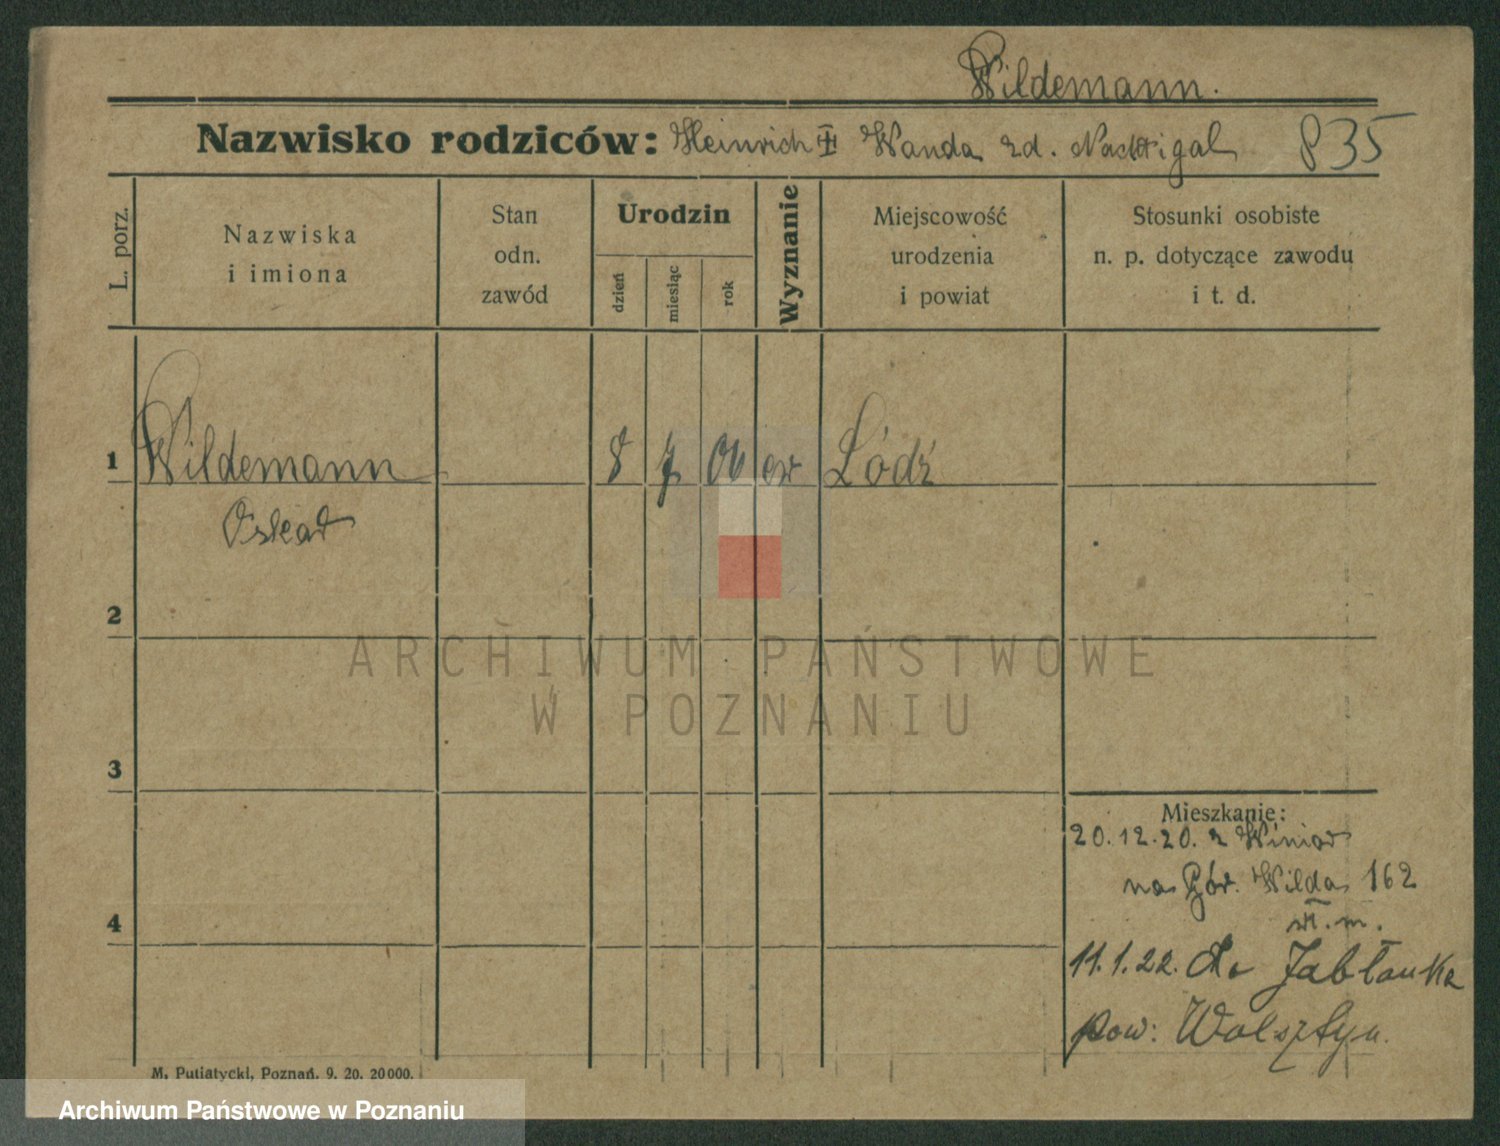 Wildemann.
Nazwisko rodziców: Heinrich ‡ Wanda rd. Nachtigal 835
L. porz.
Nazwiska
i imiona
Stan
odn.
zawód
Urodzin
dzień
miesiąc
rok
Wyznanie
Miejscowość
urodzenia
i powiat
Stosunki osobiste
n. p. dotyczące zawodu
i t. d.
1 Wildemann 8 7 06 ew Łódź
Oskar
2
3
4
ARCHIWUM PAŃSTWOWE
W POZNANIU
Mieszkanie:
20.12.20. z Winiar
na Gór. Wilda 162
m.
11.1.22. do Jabłonka
pow: Wolsztyn.
M, Putiatycki, Poznań. 9. 20. 20000.
Archiwum Państwowe w Poznaniu